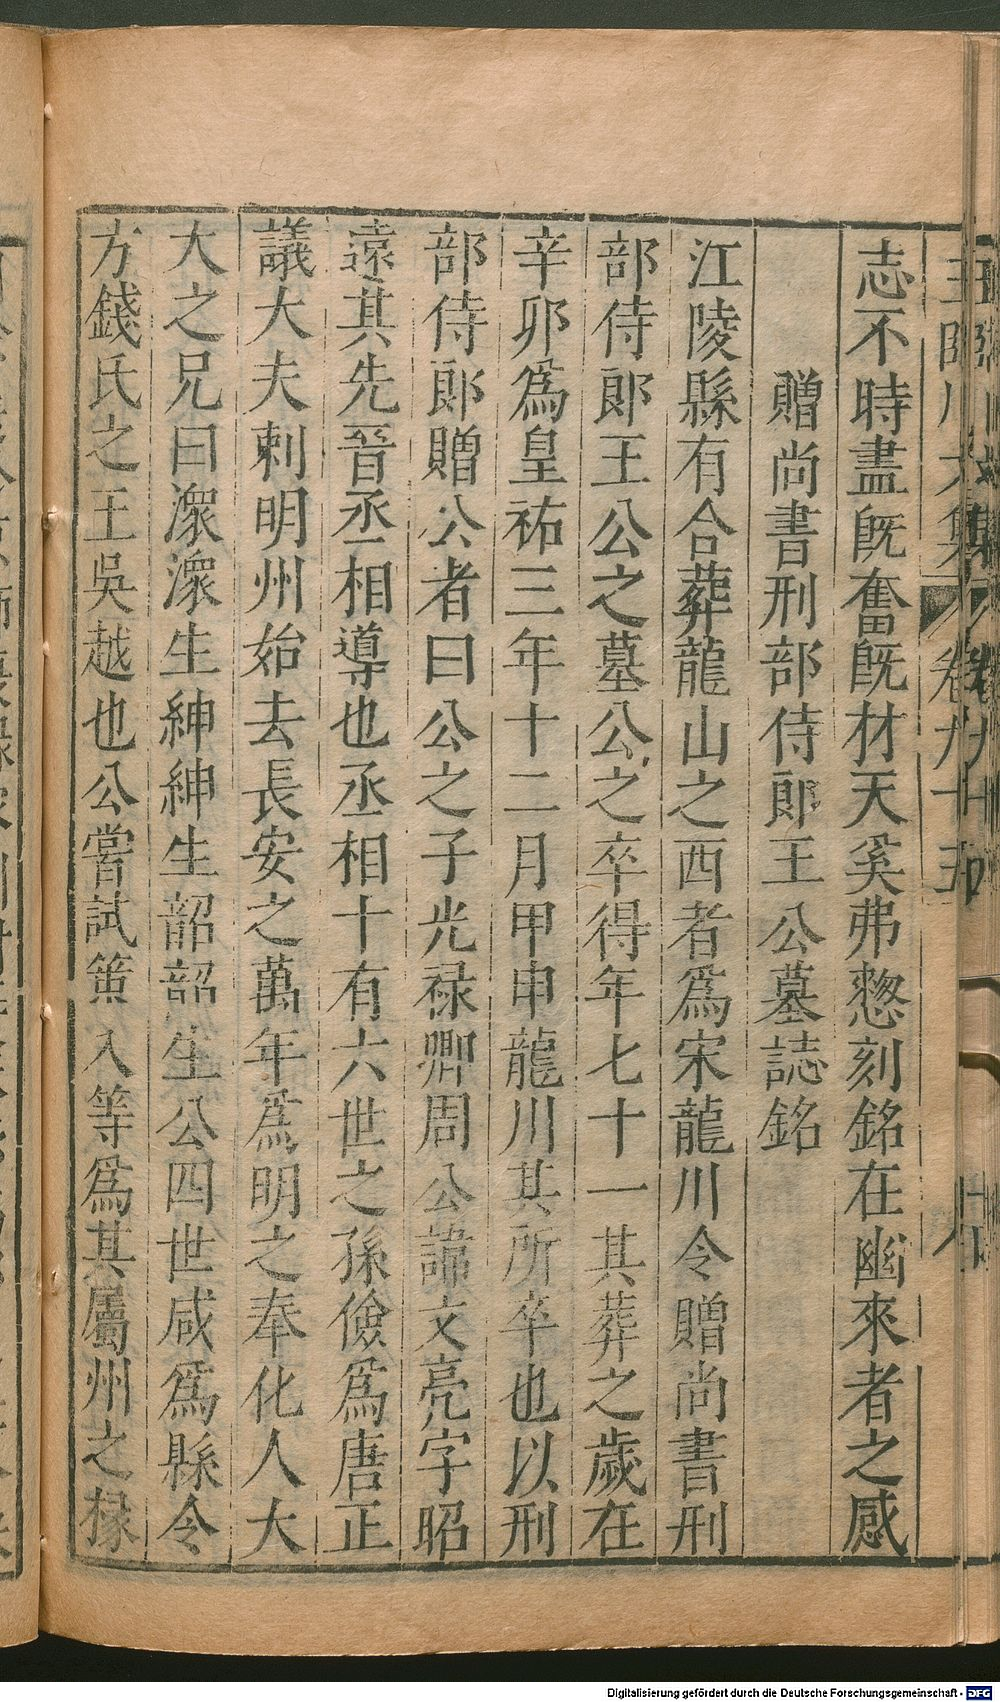 志不時盡旣奮旣材天奚弗憗刻銘在幽來者之感
贈尚書刑部侍郎王公墓誌銘
江陵縣有合葬龍山之西者爲宋龍川令贈尚書刑
部侍郎王公之墓公之卒得年七十一其葬之歲在
辛卯爲皇祐三年十二月甲申龍川其所卒也以刑
部侍郎贈公者曰公之子光祿卿周公諱文亮字昭
遠其先晉丞相導也丞相十有六世之孫儉爲唐正
議大夫刺明州始去長安之萬年爲明之奉化人大
大之兄曰濴濴生紳紳生韶韶生公四世咸爲縣令
方錢氏之王吳越也公嘗試策入等爲其屬州之掾
Digitalisierung gefördert durch die Deutsche Forschungsgemeinschaft - DFG